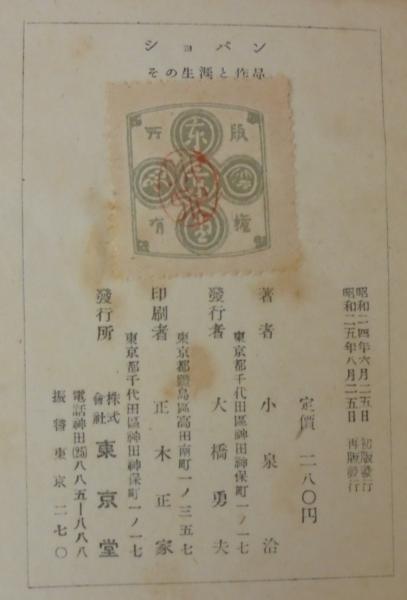 ショパン
その生涯と作品
東
所 版
京
有 權
堂
昭和二四年六月二五日 初版發行
昭和二五年八月二五日 再版發行
定價 二八〇円
著者 小泉洽
東京都千代田區神田神保町一ノ一七
發行者 大橋勇夫
東京都豐島區高田南町一ノ三五七
印刷者 正木正家
東京都千代田區神田神保町一ノ一七
發行所 株式會社 東京堂
電話神田(25)八八五―八八八
振替東京二七〇